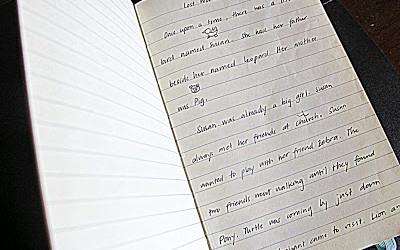 Lost
Once upon a time, there was a
bird named Susan. She had her father
beside her named leopard. Her mother
was Pig.
Susan was already a big girl. Susan
always met her friends at church. Susan
wanted to play with her friend Zebra. The
two friends went walking until they found
Pony. Turtle was coming by just down
came to visit. Lion